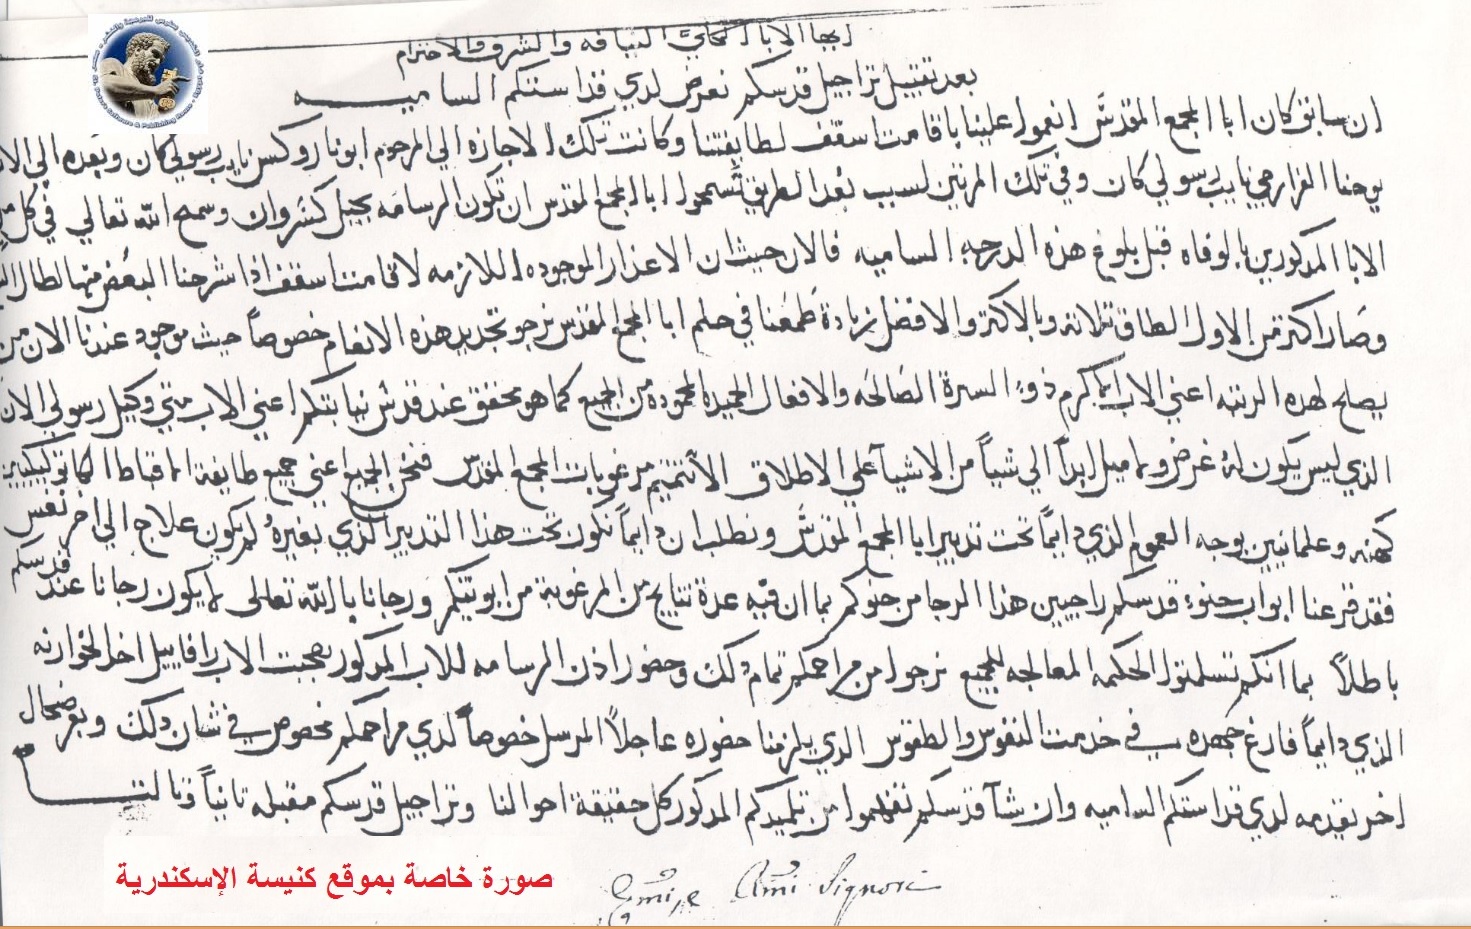 ايها الابا الكلي النيافه والشرف والاحترام
بعد تقبيل تراجيل قدسكم نعرض لدي قداستكم الساميه
ان سابق كان ابا المجمع المقدس انعموا علينا باقامت اسقف لطايفتنا وكانت تلك الاجازه الي المرحوم ابونا روكس نايب رسولي كان وبعده الي الاب
يوحنا الفرارجي نايب رسولي كان وفي تلك المرتين لسبب بُعد الطريق تسمحوا ابا المجمع المقدس ان تكون الرسامه بجبل كسروان وسمح الله تعالي في كل من
الابا المدكورين بالوفاه قبل بلوغ هذه الدرجه الساميه فالان حيث ان الاعذار الموجوده اللازمه لاقامت اسقف اذا شرحنا البعض منها لطال
وصار اكتر من الاول الطاق تلاته وبالاكتر والافضل بزيادة طمعنا في حلم ابا المجمع المقدس نرجو تجديد هذه الانعام خصوصاً حيث موجود عندنا الان من
يصلح لهده الرتبه اعني الاب المكرم ذو السيرة الصالحه والافعال الحميده المحموده من الجميع كما هو محقق عند قدس نيابتكم اعني الاب متي وكيل رسولي الان
الذي ليس يكون له غرض ولا ميل ابداً الي شياً من الاشيا علي الاطلاق الا تتميم مرغوبات المجمع المقدس فنحن الجميع اعني جميع طايفة الاقباط الكاتوليكيين
كهنه وعلمانيين بوجه العموم الذي دايماً تحت تدبير ابا المجمع المقدس ونطلب ان دايماً نكون تحت هذا التدبير الذي بغيره لم يكون علاج الي اخر نفس
فقد قرعنا ابواب حنوء قدسكم راجيين هذا الرجا من حنوكم بما ان فيه عدة نتايج من المرغوبة من ابوتيكم ورجانا بالله تعالى لا يكون رجانا عند قدسكم
باطلاً بما انكم تسلمتوا الحكيمه المعالجه للجميع نرجوا من مراحمكم تمام دلك وحضور اذن الرسامه للاب المدكور بصحبت الاب رافاييل اخر الخوارنه
الذي دايماً فارغ جهده في خدمت النفوس والطقوس الدي يلزمنا حضوره عاجلاً المرسل خصوصاً لدي مراحمكم بخصوص في شان دلك وبعرضحال
اخر نقدمه لدي قداستكم الساميه وان شآ قدسكم تفهموا من تلميدكم المدكور كل حقيقة احوالنا وتراجيل قدسكم مقبله تانياً
Signori
صورة خاصة بموقع كنيسة الإسكندرية